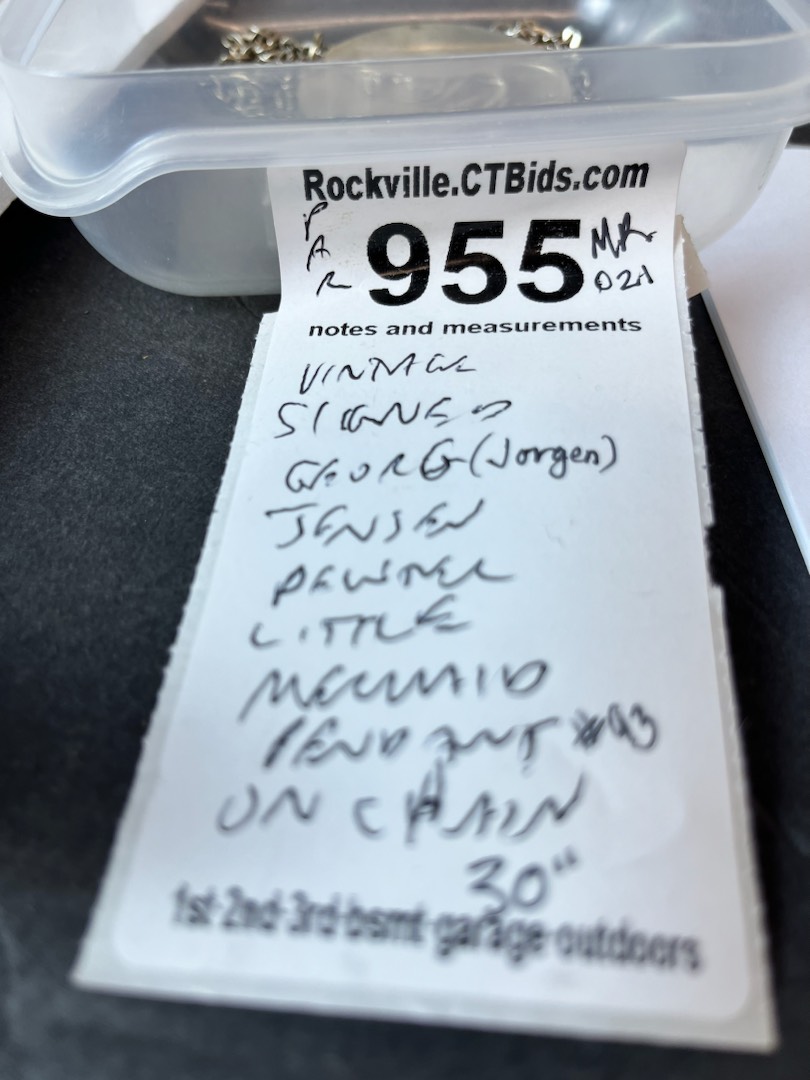 Rockville.CTBids.com
PAR
955
MR
021
notes and measurements
VINTAGE
SIGNED
GEORG (Jorgen)
JENSEN
PEWTER
LITTLE
MERMAID
PENDANT #93
ON CHAIN
30"
1st-2nd-3rd-bsmt-garage-outdoors